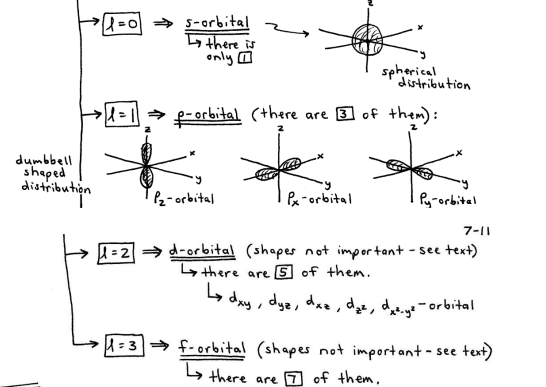 z
l=0 ⇒ s-orbital
x
↳ there is
only 1
y
spherical
distribution
l=1 ⇒ p-orbital (there are 3 of them):
z
z
z
x
x
x
dumbbell
shaped
distribution
y
y
y
Pz-orbital
Px-orbital
Py-orbital
7-11
l=2 ⇒ d-orbital (shapes not important - see text)
↳ there are 5 of them.
↳ dxy, dyz, dxz, dz², dx²-y²-orbital
l=3 ⇒ f-orbital (shapes not important - see text)
↳ there are 7 of them.